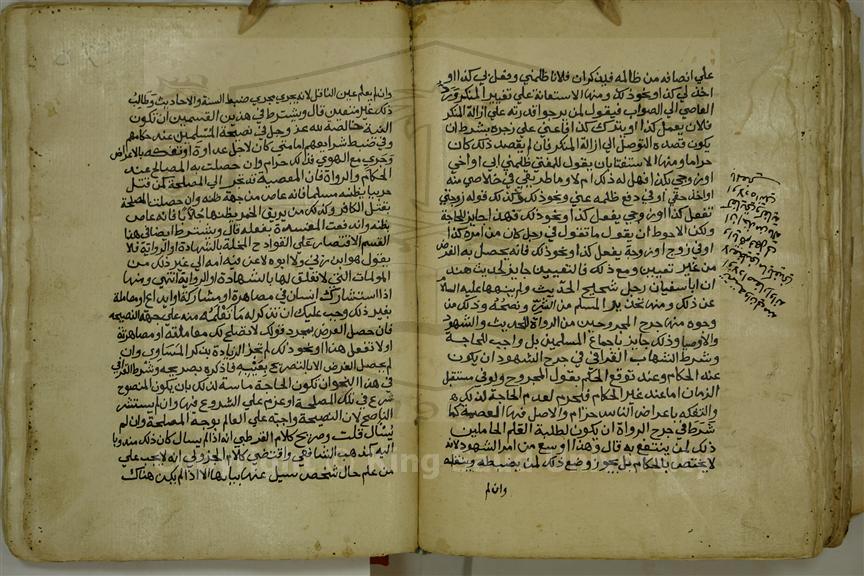 علي انصافه من ظالمه فيذكران فلانا ظلمني وفعل بي كذا او
اخذ لي كذا ونحو ذلك ومنها الاستعانة علي تغيير المنكر ورد
العاصي الي الصواب فيقول لمن يرجو قدرته علي ازالة المنكر
فلان يعمل كذا او يترك كذا فاعني علي زجره بشرط ان
يكون قصده التوصل الي ازالة المنكر فان لم يقصد ذلك كان
حراما ومنها الاستفتا بان يقول للمفتي ظلمني ابي او اخي
او زوجي بكذا فهل له ذلك ام لا وما طريقي في خلاصي منه
او اخذ حقي او في دفع ظلمه عني ونحو ذلك وكذلك قوله زوجتي
تفعل كذا او زوجي يفعل كذا ونحو ذلك فهذا جايز للحاجة
ولكن الاحوط ان يقول ما تقول في رجل كان من امره كذا
او في زوج او زوجة يفعل كذا ونحو ذلك فانه يحصل به الغرض
من غير تعيين ومع ذلك فالتعيين جايز لحديث هند
ان ابا سفيان رجل شحيح الحديث ولم ينهها عليه السلام
عن ذلك ومنها تحذير المسلم من الشر ونصحه وذلك من
وجوه منها جرح المجروحين من الرواة للحديث والشهود
والاوصيا وذلك جايز باجماع المسلمين بل واجب للحاجة
وشرط الشهاب القرافي في جرح الشهود ان يكون
عند الحكام وعند توقع الحكم بقول المجروح ولو في مستقبل
الزمان اما عند غير الحكام فيحرم لعدم الحاجة لذلك
والتفكه باعراض الناس حرام والاصل فيها العصمة كما
شرط في جرح الرواة ان يكون لطلبة العلم الحاملين
ذلك لمن ينتفع به قال وهذا اوسع من امر الشهود لانه
لا يختص بالحكام بل يجوز وضع ذلك لمن يضبطه وينقله
وان لم
وان لم يعلم عين الناقل لانه يجري مجري ضبط السنة والاحاديث وطالب
ذلك غير متعين قال ويشترط في هذين القسمين ان تكون
النية خالصة لله عز وجل في نصيحة المسلمين عند حكامهم
وفي ضبط شرايعهم اما متي كان لاجل عداوة او تفكه بالاعراض
وجري مع الهوي فذلك حرام وان حصلت به المصالح عند
الحكام والرواة فان المعصية قد تجر الي المصلحة كمن قتل
حربيا يظنه مسلما فانه عاص من جهة ظنه وان حصلت المصلحة
بقتل الكافر وكذلك من يريق الخمر يظنها خلا فانه عاص
بظنه واندفعت المفسدة بفعله قال ويشترط ايضا في هذا
القسم الاقتصار علي القوادح المخلة بالشهادة او الرواية فلا
يقول هو ابن زني ولا ابوه لاعن فيه امه الي غير ذلك من
المولمات التي لا تعلق لها بالشهادة او الرواية انتهي ومنها
اذا استشارك انسان في مصاهرة او مشاركة او ايداع او معاملة
بغير ذلك وجب عليك ان تذكر له ما تعلمه منه علي جهة النصيحة
فان حصل الغرض بمجرد قولك لا تصلح لك معاملته او مصاهرته
او لا تفعل هذا او نحو ذلك لم تجز الزيادة بذكر المساوي وان
لم يحصل الغرض الا بالتصريح بعينه فاذكره بصريحه وشرط القرافي
في هذا النحو ان تكون الحاجة ماسة لذلك بان يكون المنصوح
شرع في تلك المصلحة او عزم علي الشروع فيها وان لم يستشر
الناصح لان النصيحة واجبة علي العالم بوجه المصلحة وان لم
يسال قلت وصريح كلام القرطبي انه اذا لم يسال كان ذلك مندوبا
اليه كمذهب الشافعي واقتضي كلام الجزولي انه لا يجب علي
من علم حال شخص سيل عنها بيانها الا اذا لم يكن هناك